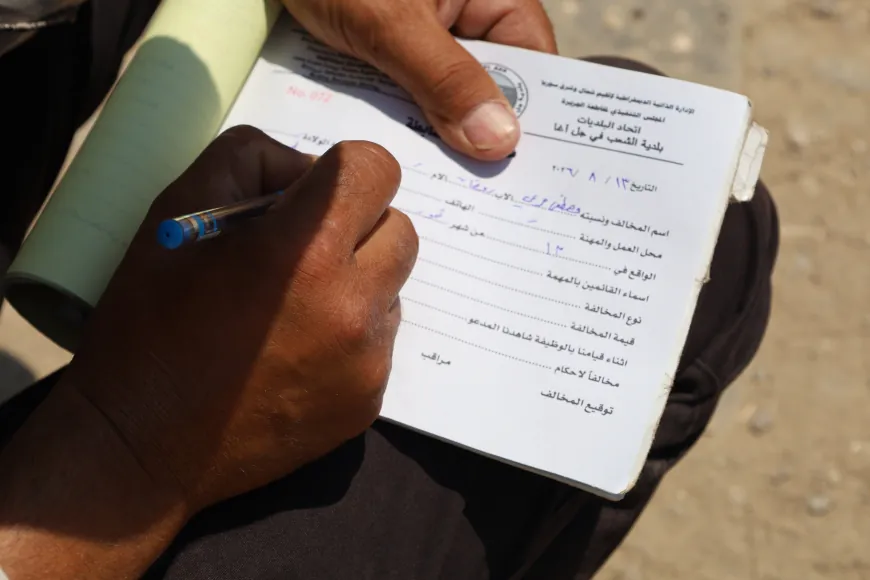 الإدارة الذاتية الديمقراطية لإقليم شمال وشرق سوريا
المجلس التنفيذي لمقاطعة الجزيرة
اتحاد البلديات
بلدية الشعب في جل آغا
No.
التاريخ ١٣ / ٨ /
اسم المخالف ونسبته مصطفى الاب رمضان الام
محل العمل والمهنة الهاتف
الواقع في ١٣ من شهر تموز
اسماء القائمين بالمهمة
نوع المخالفة
قيمة المخالفة
اثناء قيامنا بالوظيفة شاهدنا المدعو
مخالفاً لاحكام
مراقب
توقيع المخالف